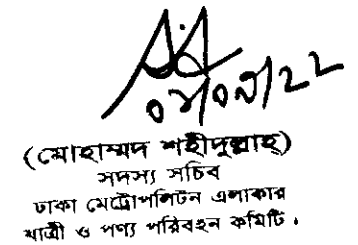 ০৮/০৯/২২
(মোহাম্মদ শহীদুল্লাহ)
সদস্য সচিব
ঢাকা মেট্রোপলিটন এলাকার
যাত্রী ও পণ্য পরিবহন কমিটি।